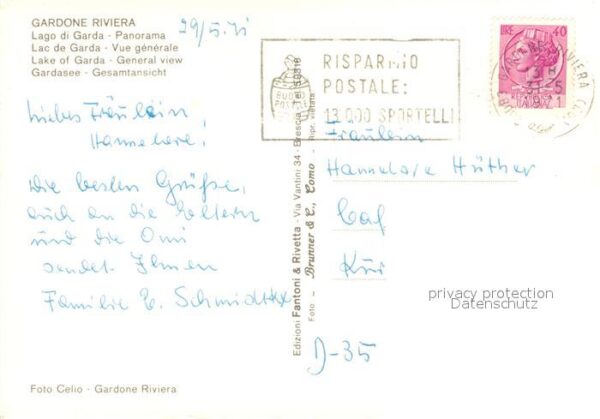 GARDONE RIVIERA
Lago di Garda - Panorama
Lac de Garda - Vue générale
Lake of Garda - General view
Gardasee - Gesamtansicht
29/5.71
Liebes Fräulein
Hannelore,
Die besten Grüße,
auch an die Eltern
und die Omi
sendet Ihnen
Familie E.
Foto Celio - Gardone Riviera
Edizioni Fantoni & Rivetta - Via Vantini 34 - Brescia - Tel. 50316
Foto - Brunner & C., Como - Ripr. vietata
BUONI
RISPARMIO
POSTALE:
13.000 SPORTELLI
LIRE 40
RIVIERA
Fräulein
Hannelore Hüther
D-35
privacy protection
Datenschutz